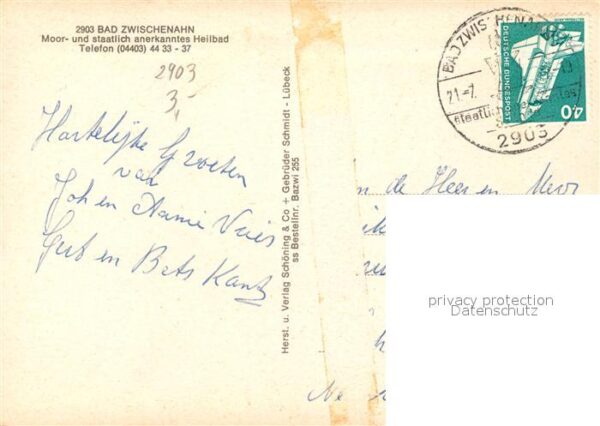 2903 BAD ZWISCHENAHN
Moor- und staatlich anerkanntes Heilbad
Telefon (04403) 44 33 - 37
2903
3,-
Hartelijke Groeten
van
Joh en Annie Vries
Gert en Bets Kantz
Herst. u. Verlag Schöning & Co + Gebrüder Schmidt - Lübeck
ss Bestellnr. Bazwi 255
BAD ZWISCHENAHN
21.-7.
staatlich
2903
DEUTSCHE BUNDESPOST
40
de Heer en Mevr
privacy protection
Datenschutz